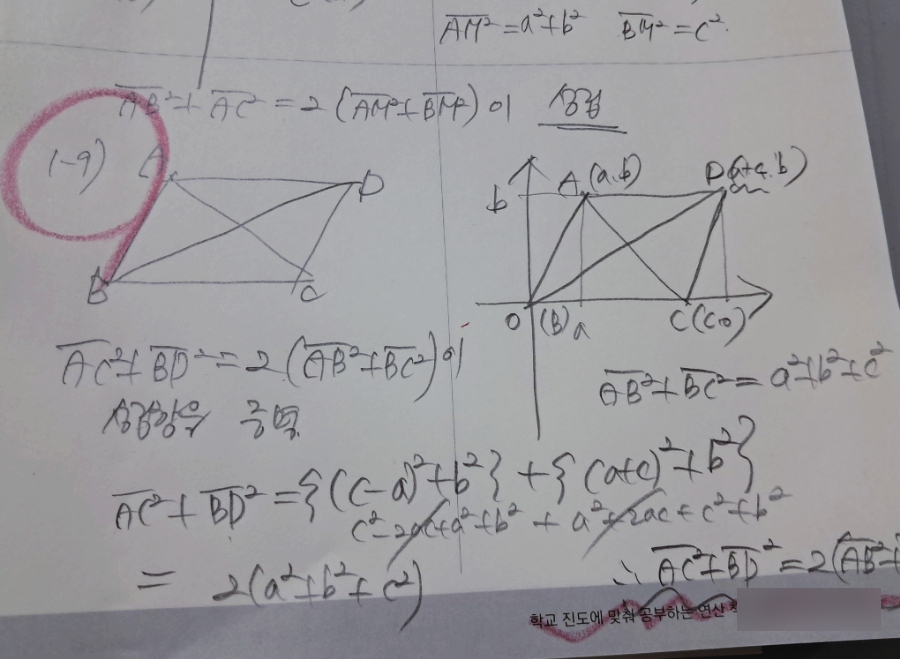 AM² = a²+b² BM² = c².
AB²+AC² = 2(AM²+BM²)이 성립
(-9)
A
D
B
C
b
A(a.b)
D(a+c.b)
O (B) a
C(c.0)
AC²+BD² = 2(AB²+BC²)이
성립함을 증명
AB²+BC² = a²+b²+c²
AC²+BD² = {(c-a)²+b²} + {(a+c)²+b²}
c²-2ac+a²+b² + a²+2ac+c²+b²
= 2(a²+b²+c²)
∴ AC²+BD² = 2(AB²+
학교 진도에 맞춰 공부하는 연산